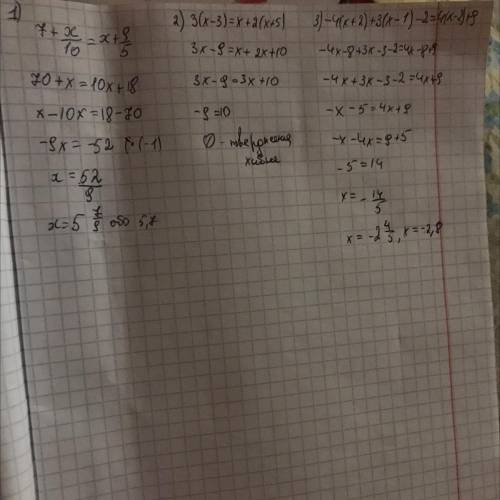 1)
7 + x/10 = x + 9/5
70 + x = 10x + 18
x - 10x = 18 - 70
-9x = -52 |·(-1)
x = 52/9
x = 5 7/9 або 5,7
2) 3(x-3) = x + 2(x+5)
3x - 9 = x + 2x + 10
3x - 9 = 3x + 10
-9 = 10
∅ - твердження
хибне
3) -4(x+2) + 3(x-1) - 2 = 4(x-2) + 9
-4x - 8 + 3x - 3 - 2 = 4x - 8 + 9
-4x + 3x - 3 - 2 = 4x + 9
-x - 5 = 4x + 9
-x - 4x = 9 + 5
-5 = 14
x = -14/5
x = -2 4/5, x = -2,8